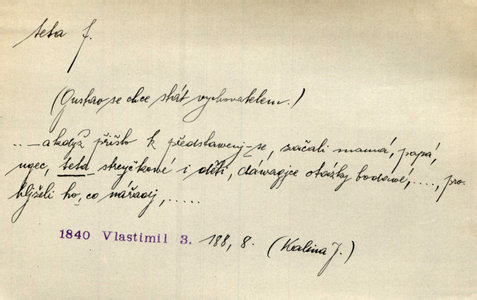 teta f.
(Gustav se chce stát vychovatelem.)
... – a když přišlo k představený-se, začali mamá, papá,
ugec, teta strýčkové i děti, dáwagjce otázky bodawé, ...., pro-
hljželi ho, co nářadj, .....
1840 Vlastimil 3. 188, 8. (Kalina J.)